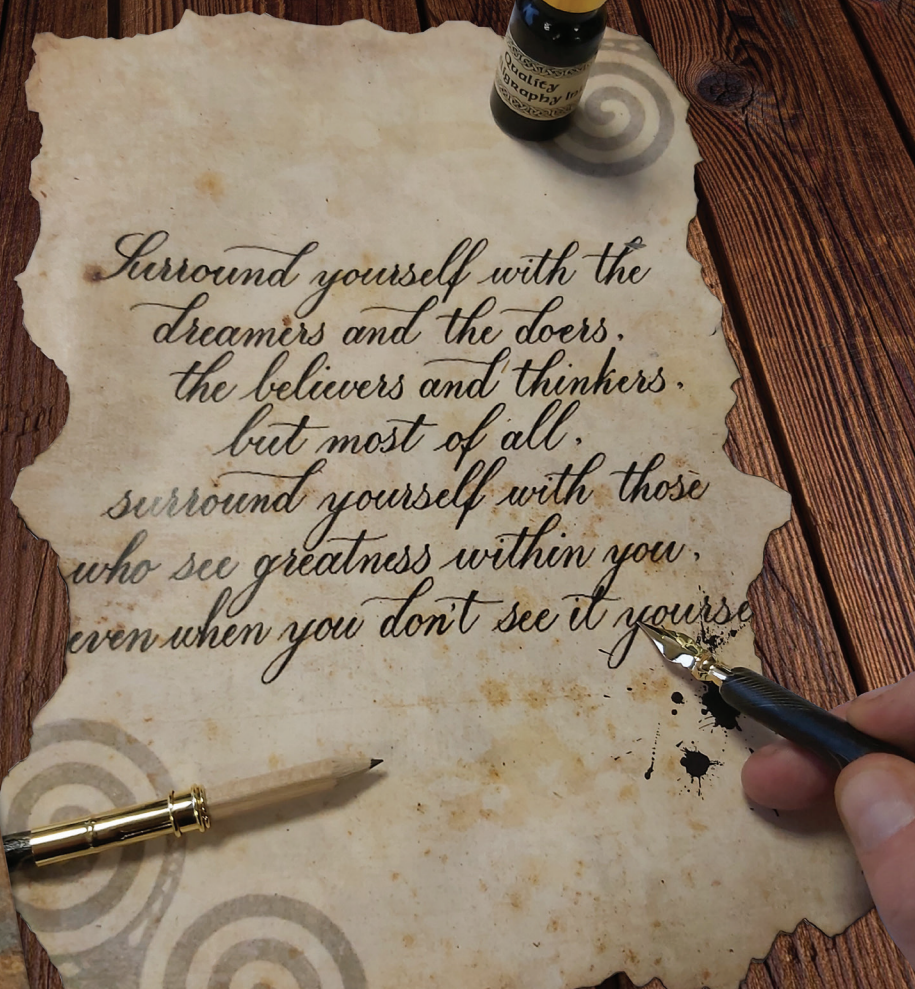 Quality
Surround yourself with the
dreamers and the doers,
the believers and thinkers,
but most of all,
surround yourself with those
who see greatness within you,
even when you don't see it yourse